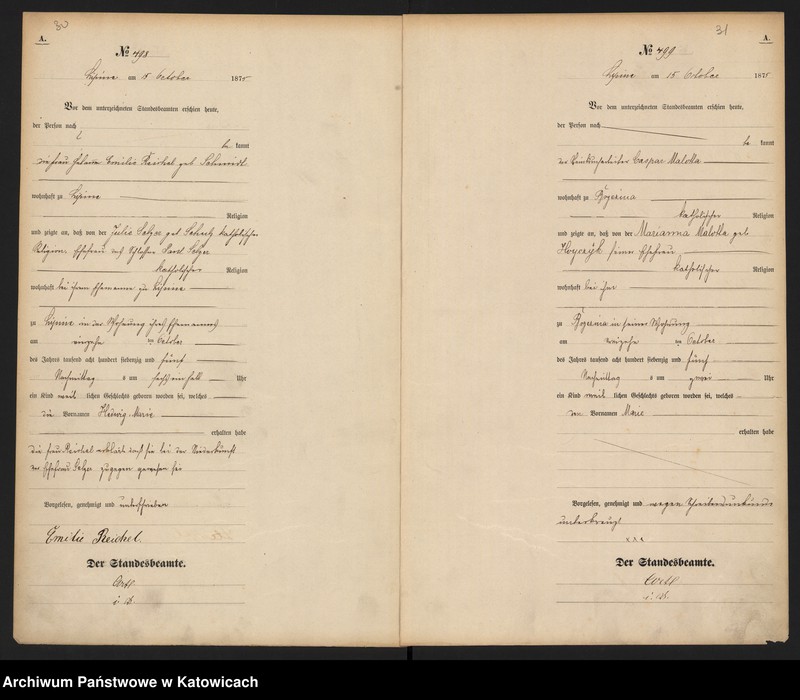 30
A.
№ 498
Lipine am 15 October 1875
Vor dem unterzeichneten Standesbeamten erschien heute,
der Person nach
be kannt
die Frau Emilie Reichel geb. Schmidt
wohnhaft zu Lipine
Religion
und zeigte an, daß von der Julie geb. katholischer
Religion, Ehefrau des
katholischer Religion
wohnhaft bei ihrem Ehemanne zu Lipine
zu Lipine in der Wohnung ihres Ehemannes
am ten October
des Jahres tausend acht hundert siebenzig und fünf
Nachmittag s um Uhr
ein Kind weib lichen Geschlechts geboren worden sei, welches
die Vornamen Hedwig, Marie
erhalten habe
die Frau Reichel erklärte daß sie bei der Niederkunft
der Ehefrau zugegen gewesen sei
Vorgelesen, genehmigt und unterschrieben
Emilie Reichel.
Der Standesbeamte.
31
A.
№ 499
Lipine am 15 October 1875
Vor dem unterzeichneten Standesbeamten erschien heute,
der Person nach
be kannt
der Caspar Malotta
wohnhaft zu
katholischer Religion
und zeigte an, daß von der Marianna Malotta geb.
seiner Ehefrau
katholischer Religion
wohnhaft bei ihm
zu in seiner Wohnung
am ten October
des Jahres tausend acht hundert siebenzig und fünf
Nachmittag s um zwei Uhr
ein Kind weib lichen Geschlechts geboren worden sei, welches
den Vornamen Marie
erhalten habe
Vorgelesen, genehmigt und wegen Schreibensunkunde
unterkreuzt
xxx
Der Standesbeamte.
Archiwum Państwowe w Katowicach